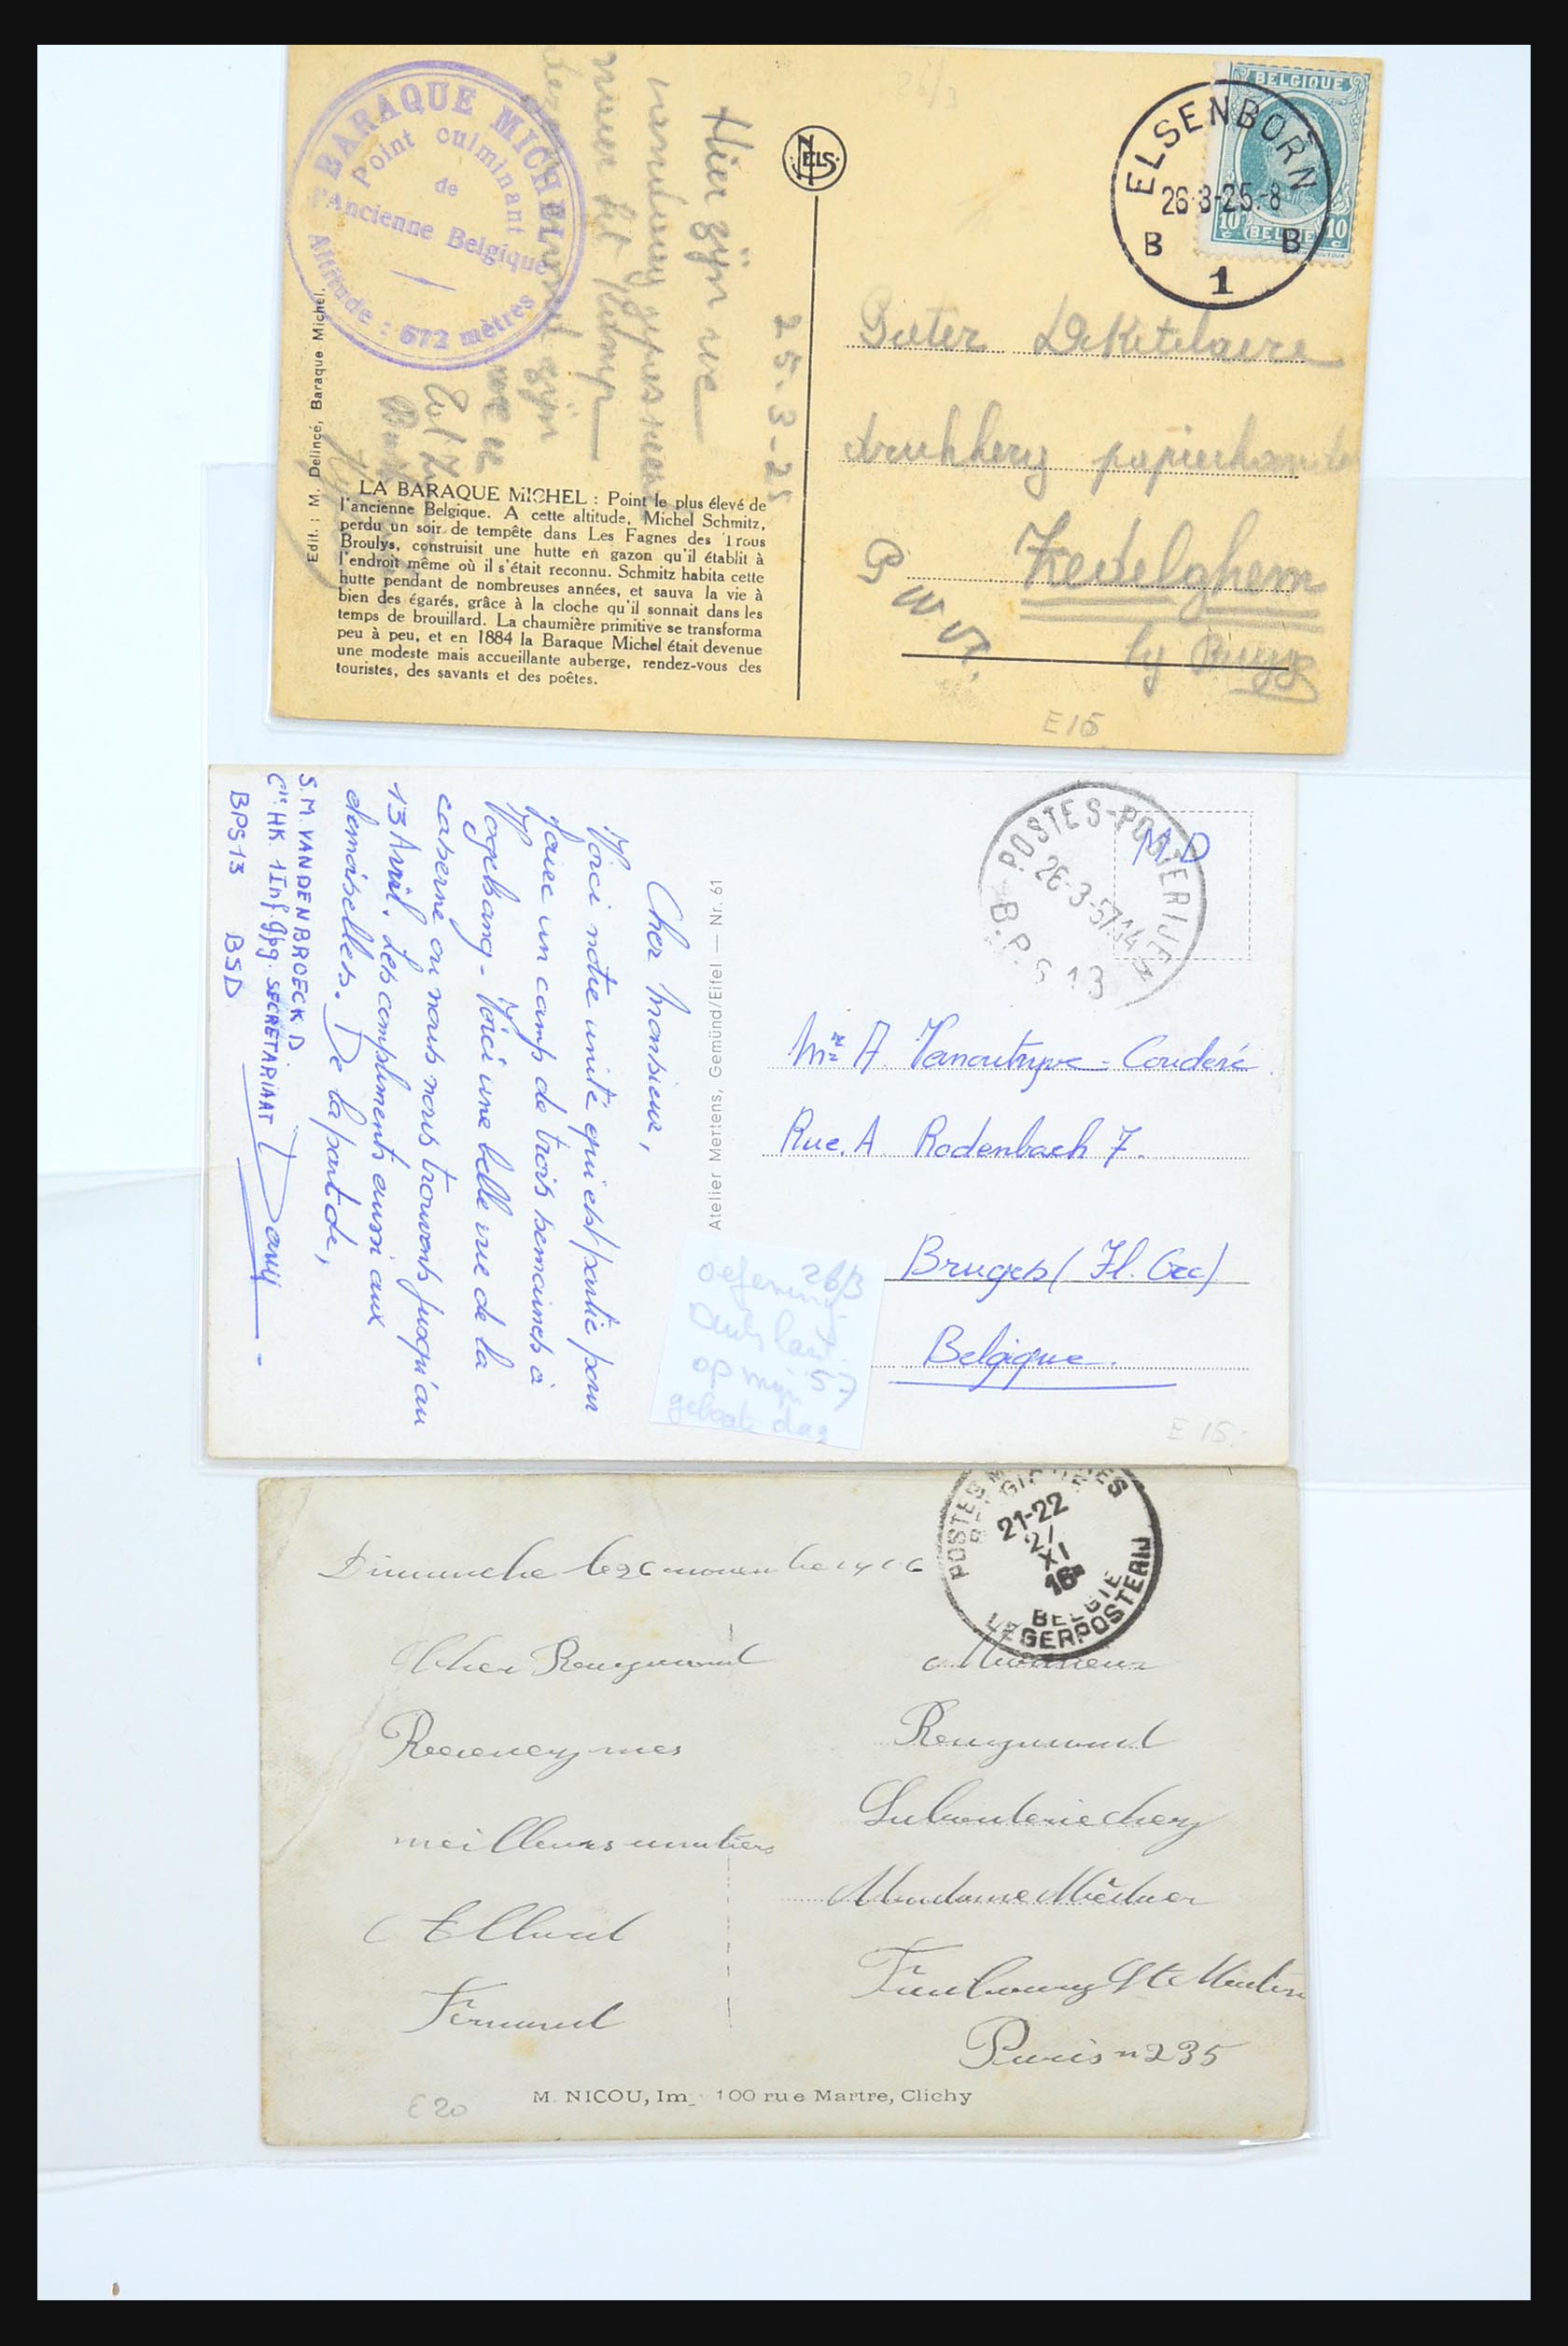 BARAQUE MICHEL
Point culminant
de
l'Ancienne Belgique
Altitude : 672 mètres
26/3
Hier zijn we
naar het kamp
25-3-25
Edit. : M. Delincé, Baraque Michel.
LA BARAQUE MICHEL : Point le plus élevé de
l'ancienne Belgique. A cette altitude, Michel Schmitz,
perdu un soir de tempête dans Les Fagnes des Trous
Broulys, construisit une hutte en gazon qu'il établit à
l'endroit même où il s'était reconnu. Schmitz habita cette
hutte pendant de nombreuses années, et sauva la vie à
bien des égarés, grâce à la cloche qu'il sonnait dans les
temps de brouillard. La chaumière primitive se transforma
peu à peu, et en 1884 la Baraque Michel était devenue
une modeste mais accueillante auberge, rendez-vous des
touristes, des savants et des poètes.
NELS
BELGIQUE
10 c BELGIE 10 c
ELSENBORN
26-3-25.-8
B B
1
Pieter DeKetelaere
drukkery papierhandel
Zedelghem
by Brugge
P W Vl.
E15
Cher Monsieur,
Voici notre unité qui est partie pour
faire un camp de trois semaines à
Vogelsang - Voici une belle vue de la
caserne ou nous nous trouvons jusqu'au
13 Avril. Les compliments aussi aux
demoiselles. De la part de,
S.M. VAN DEN BROECK D
Cie HK. 1 Inf. gpg. SECRETARIAAT
BPS 13 BSD
Davy
Atelier Mertens, Gemünd/Eifel — Nr. 61
POSTES-POSTERIJEN
26-3-57.14
B.P.S 13
M D
Mr A. Vanoutryve-Couderé
Rue. A Rodenbach 7.
Bruges (Fl. Occ)
Belgique.
26/3
oefening
Duitsland
op mijn 57
geboorte dag
E 15.
Dimanche le 26 novembre 1916
POSTES
21-22
21
XI
16
BELGIE
LEGERPOSTERIJ
Cher Raymond
Recevez mes
meilleurs amitiers
Allard
Fernand
Monsieur
Raymond
Madame
Faubourg St Martin
Paris n 235
M. NICOU, Im. 100 rue Martre, Clichy
E 20